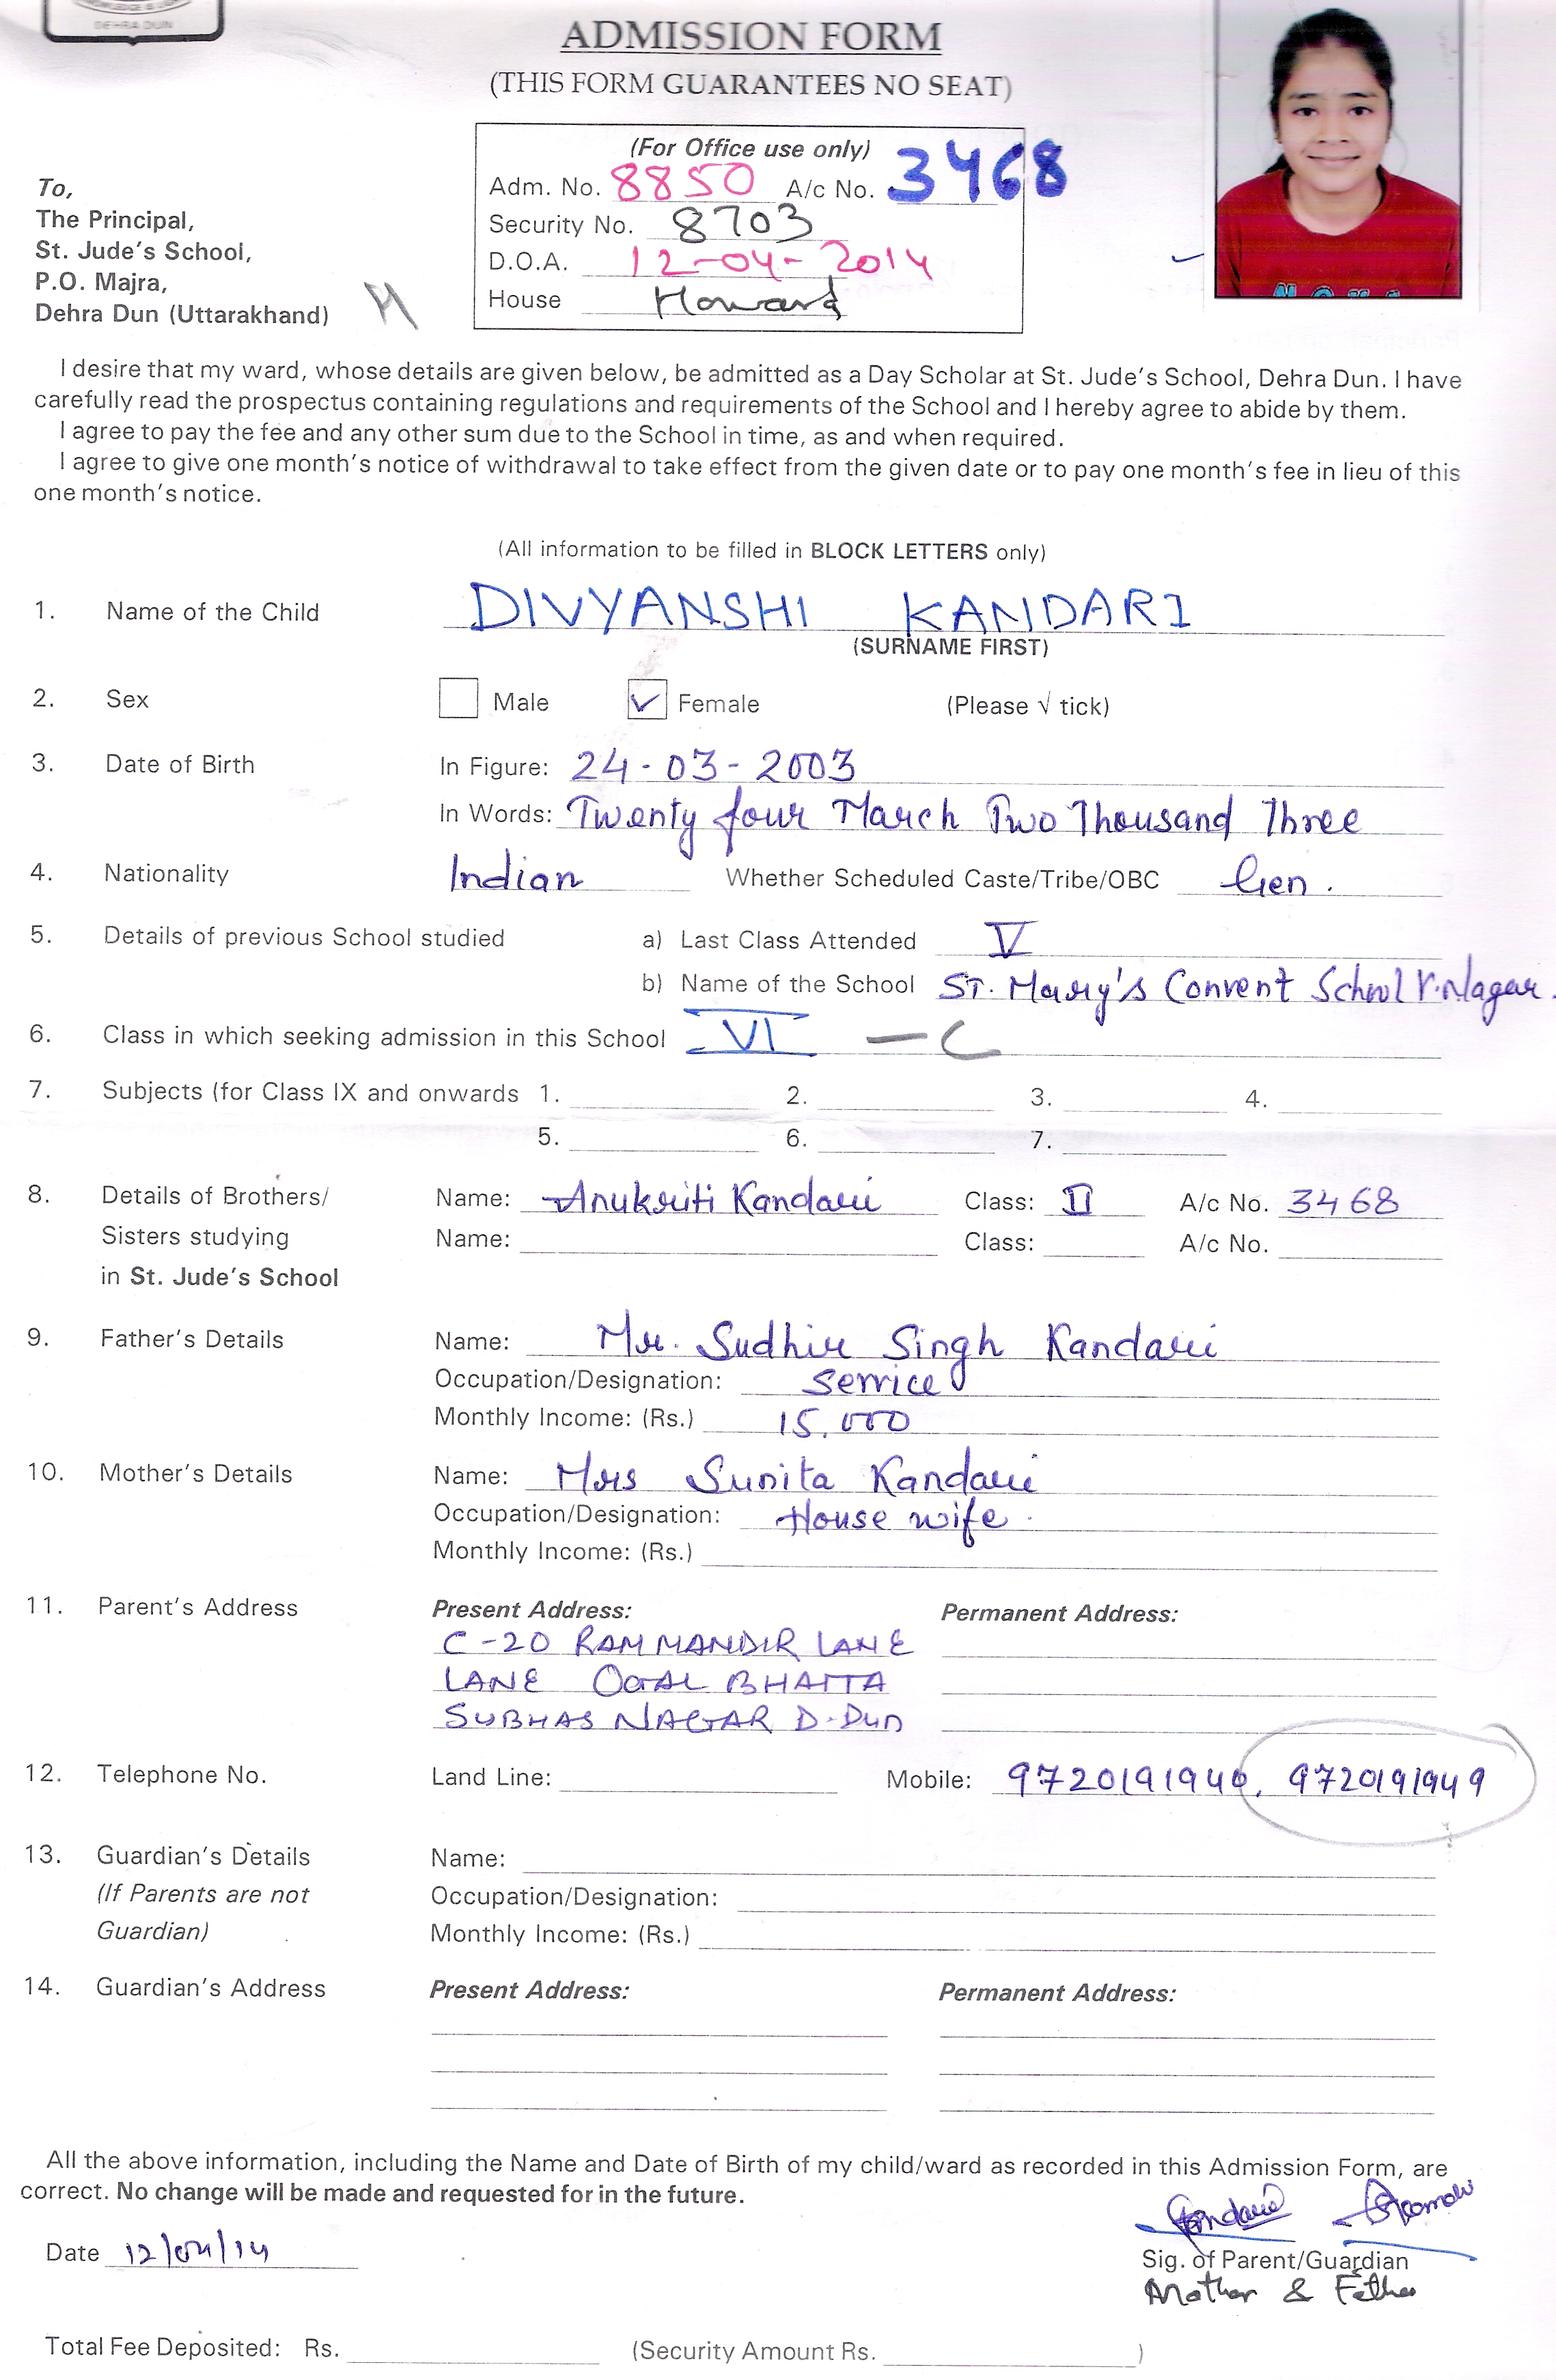 DEHRA DUN
ADMISSION FORM
(THIS FORM GUARANTEES NO SEAT)
(For Office use only)
Adm. No. 8850 A/c No. 3468
Security No. 8703
D.O.A. 12-04-2014
House Howard
To,
The Principal,
St. Jude's School,
P.O. Majra,
Dehra Dun (Uttarakhand) H
I desire that my ward, whose details are given below, be admitted as a Day Scholar at St. Jude's School, Dehra Dun. I have
carefully read the prospectus containing regulations and requirements of the School and I hereby agree to abide by them.
I agree to pay the fee and any other sum due to the School in time, as and when required.
I agree to give one month's notice of withdrawal to take effect from the given date or to pay one month's fee in lieu of this
one month's notice.
(All information to be filled in BLOCK LETTERS only)
1. Name of the Child DIVYANSHI KANDARI
(SURNAME FIRST)
2. Sex Male ✓ Female (Please √ tick)
3. Date of Birth In Figure: 24-03-2003
In Words: Twenty four March Two Thousand Three
4. Nationality Indian Whether Scheduled Caste/Tribe/OBC Gen.
5. Details of previous School studied a) Last Class Attended V
b) Name of the School ST. Mary's Convent School V.Nagar.
6. Class in which seeking admission in this School VI - C
7. Subjects (for Class IX and onwards 1. 2. 3. 4.
5. 6. 7.
8. Details of Brothers/ Name: Anukriti Kandari Class: II A/c No. 3468
Sisters studying Name: Class: A/c No.
in St. Jude's School
9. Father's Details Name: Mr. Sudhir Singh Kandari
Occupation/Designation: Service
Monthly Income: (Rs.) 15,000
10. Mother's Details Name: Mrs Sunita Kandari
Occupation/Designation: House wife.
Monthly Income: (Rs.)
11. Parent's Address Present Address: Permanent Address:
C-20 RAM MANDIR LANE
LANE OGAL BHATTA
SUBHAS NAGAR D-Dun
12. Telephone No. Land Line: Mobile: 9720191940, 9720191949
13. Guardian's Details Name:
(If Parents are not Occupation/Designation:
Guardian) Monthly Income: (Rs.)
14. Guardian's Address Present Address: Permanent Address:
All the above information, including the Name and Date of Birth of my child/ward as recorded in this Admission Form, are
correct. No change will be made and requested for in the future.
Kandari
Date 12/04/14
Sig. of Parent/Guardian
Mother & Father
Total Fee Deposited: Rs. (Security Amount Rs. )